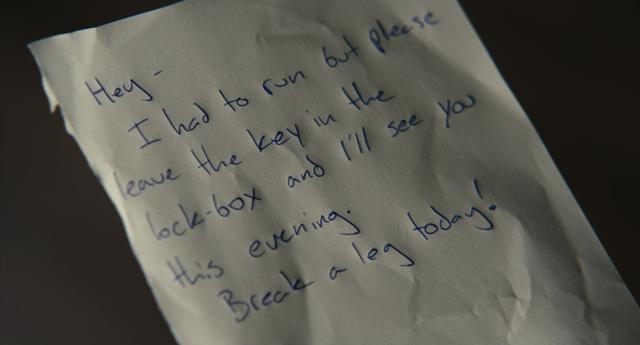 Hey -
I had to run but please
leave the key in the
lock-box and I'll see you
this evening.
Break a leg today!